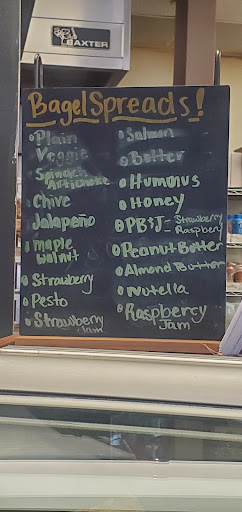 BAXTER
Bagel Spreads!
Plain
Veggie
Spinach
Artichoke
Chive
Jalapeño
Maple
Walnut
Strawberry
Pesto
Strawberry
Jam
Salmon
Butter
Hummus
Honey
PB&J- Strawberry
Raspberry
Peanut Butter
Almond Butter
Nutella
Raspberry
Jam